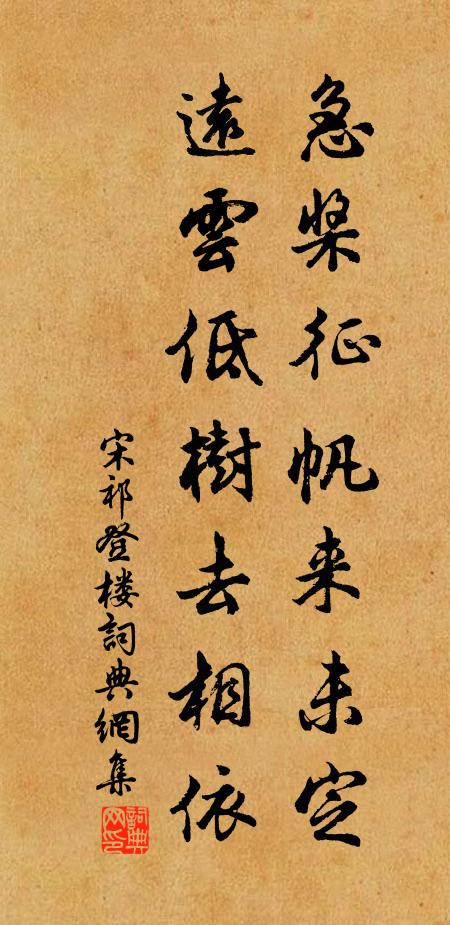 急槳征帆来未定
遠雲低樹去相依
宋祁登楼詞典網集
詞典网印